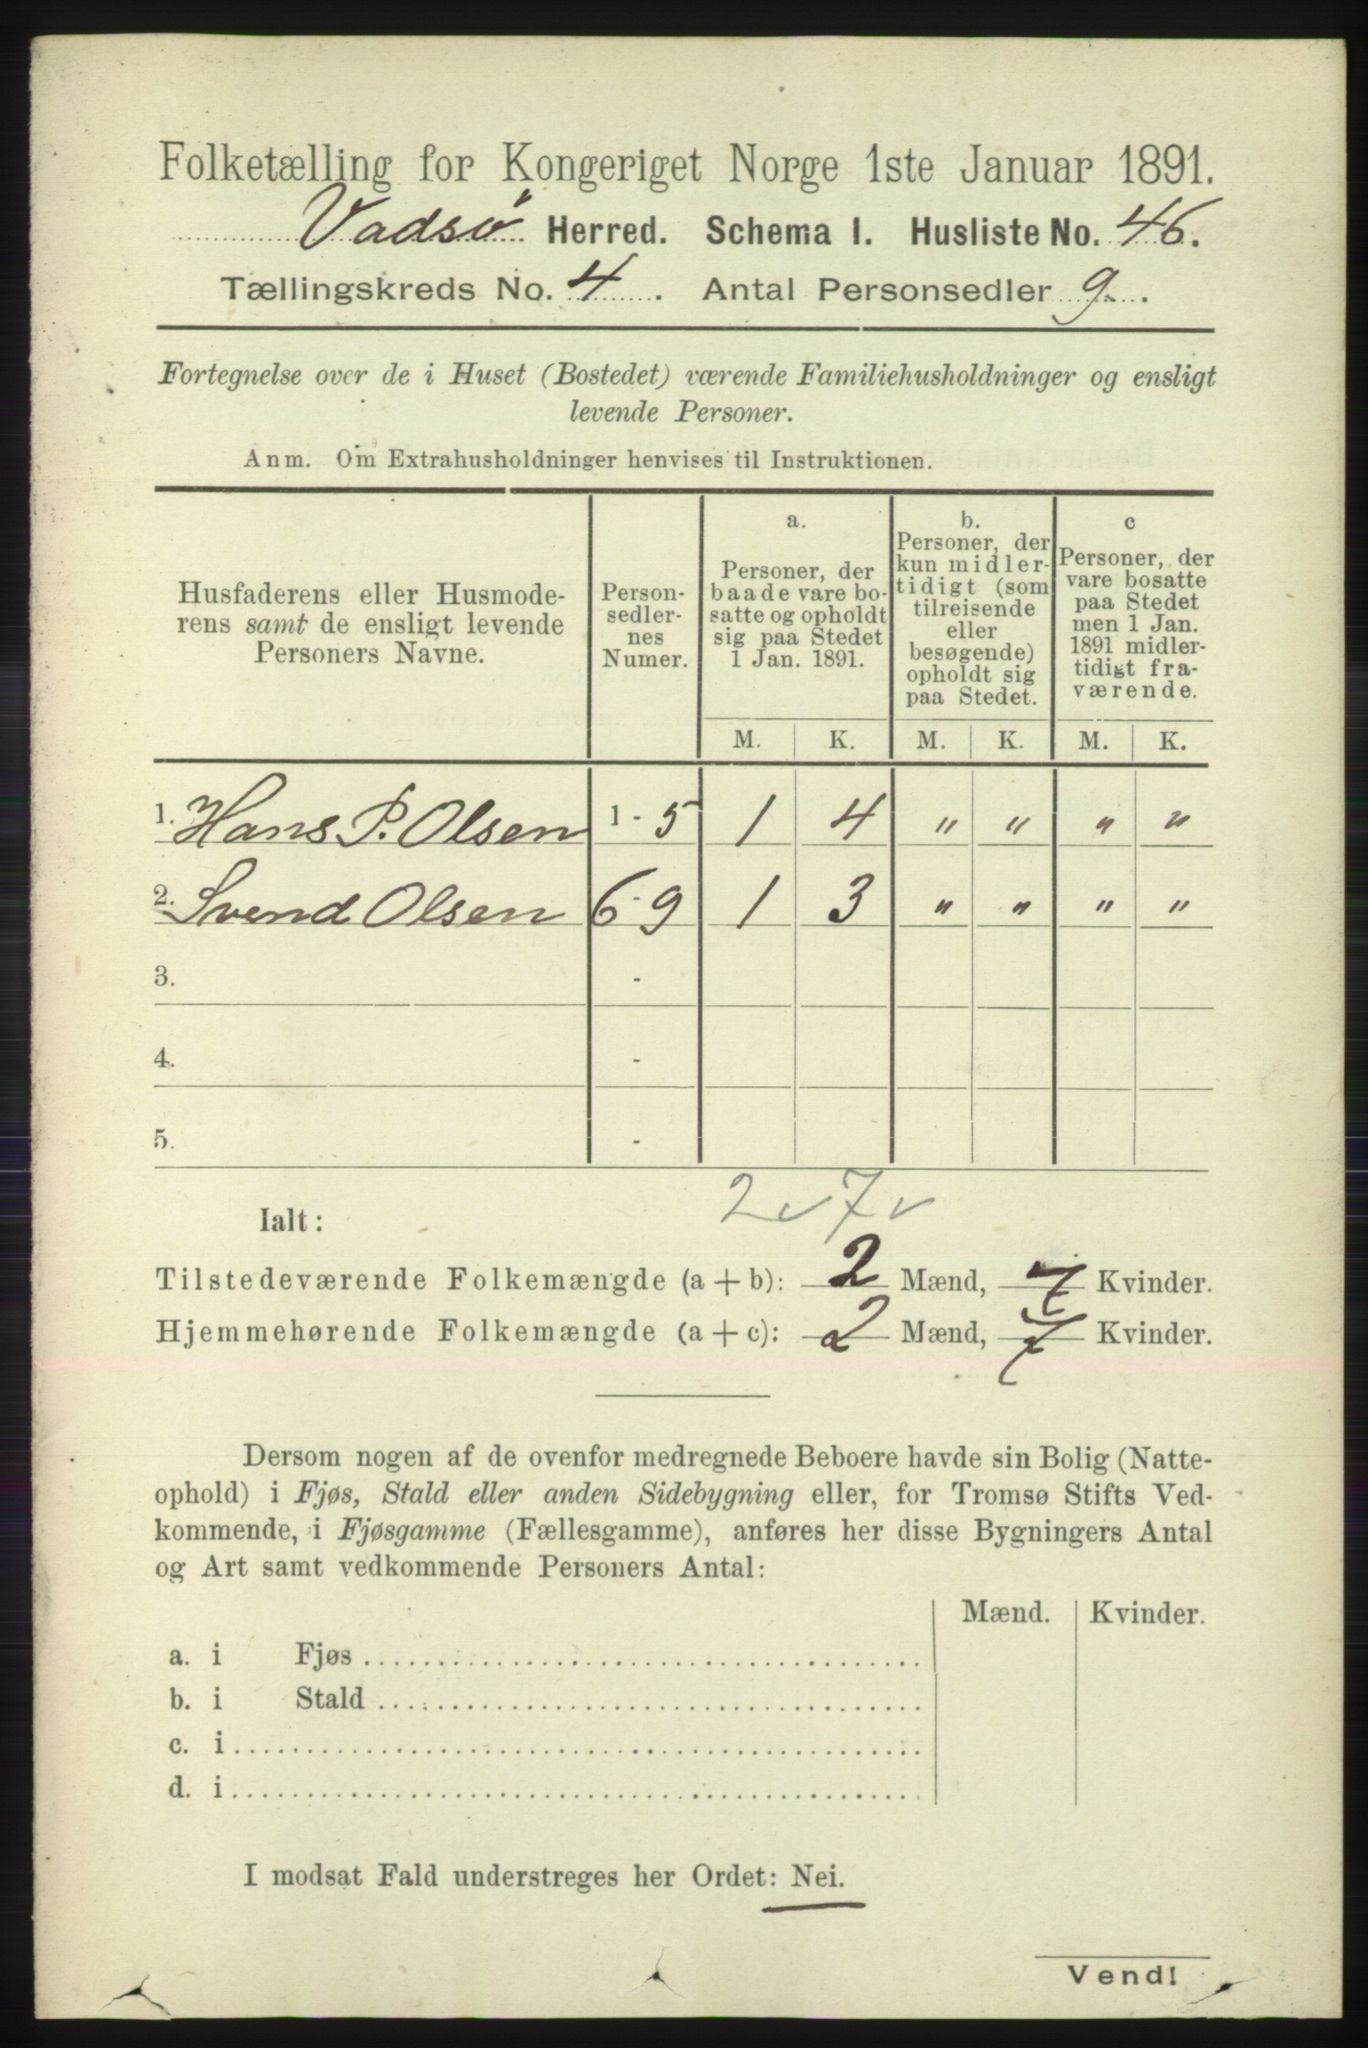 Folketælling for Kongeriget Norge 1ste Januar 1891.
Vadsø Herred. Schema I. Husliste No. 46.
Tællingskreds No. 4. Antal Personsedler 9.
Fortegnelse over de i Huset (Bostedet) værende Familiehusholdninger og ensligt
levende Personer.
Anm. Om Extrahusholdninger henvises til Instruktionen.
Husfaderens eller Husmode-
rens samt de ensligt levende
Personers Navne.
Person-
sedler-
nes
Numer.
a.
Personer, der
baade vare bo-
satte og opholdt
sig paa Stedet
1 Jan. 1891.
b.
Personer, der
kun midler-
tidigt (som
tilreisende
eller
besøgende)
opholdt sig
paa Stedet.
c
Personer, der
vare bosatte
paa Stedet
men 1 Jan.
1891 midler-
tidigt fra-
værende.
M. K. M. K. M. K.
1. Hans P. Olsen 1 - 5 1 4 " " " "
2. Svend Olsen 6 - 9 1 3 " " " "
3. -
4. -
5. -
2 v 7 v
Ialt:
Tilstedeværende Folkemængde (a + b): 2 Mænd, 7 Kvinder.
Hjemmehørende Folkemængde (a + c): 2 Mænd, 7 Kvinder.
Dersom nogen af de ovenfor medregnede Beboere havde sin Bolig (Natte-
ophold) i Fjøs, Stald eller anden Sidebygning eller, for Tromsø Stifts Ved-
kommende, i Fjøsgamme (Fællesgamme), anføres her disse Bygningers Antal
og Art samt vedkommende Personers Antal:
Mænd. Kvinder.
a. i Fjøs
b. i Stald
c. i
d. i
I modsat Fald understreges her Ordet: Nei.
Vend!